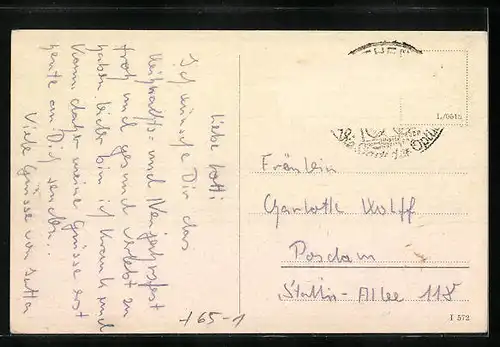 Liebe Lotti
Ich wünsche Dir das
Weihnachts- und Neujahrsfest
froh und gesund verlebt zu
haben. Leider bin ich krank und
kann daher meine Grüsse erst
heute an Dich senden.
Viele Grüsse von
Fräulein
Charlotte Wolff
Posdam
Stettin-Allee 118
L/0615
+65-1
I 572